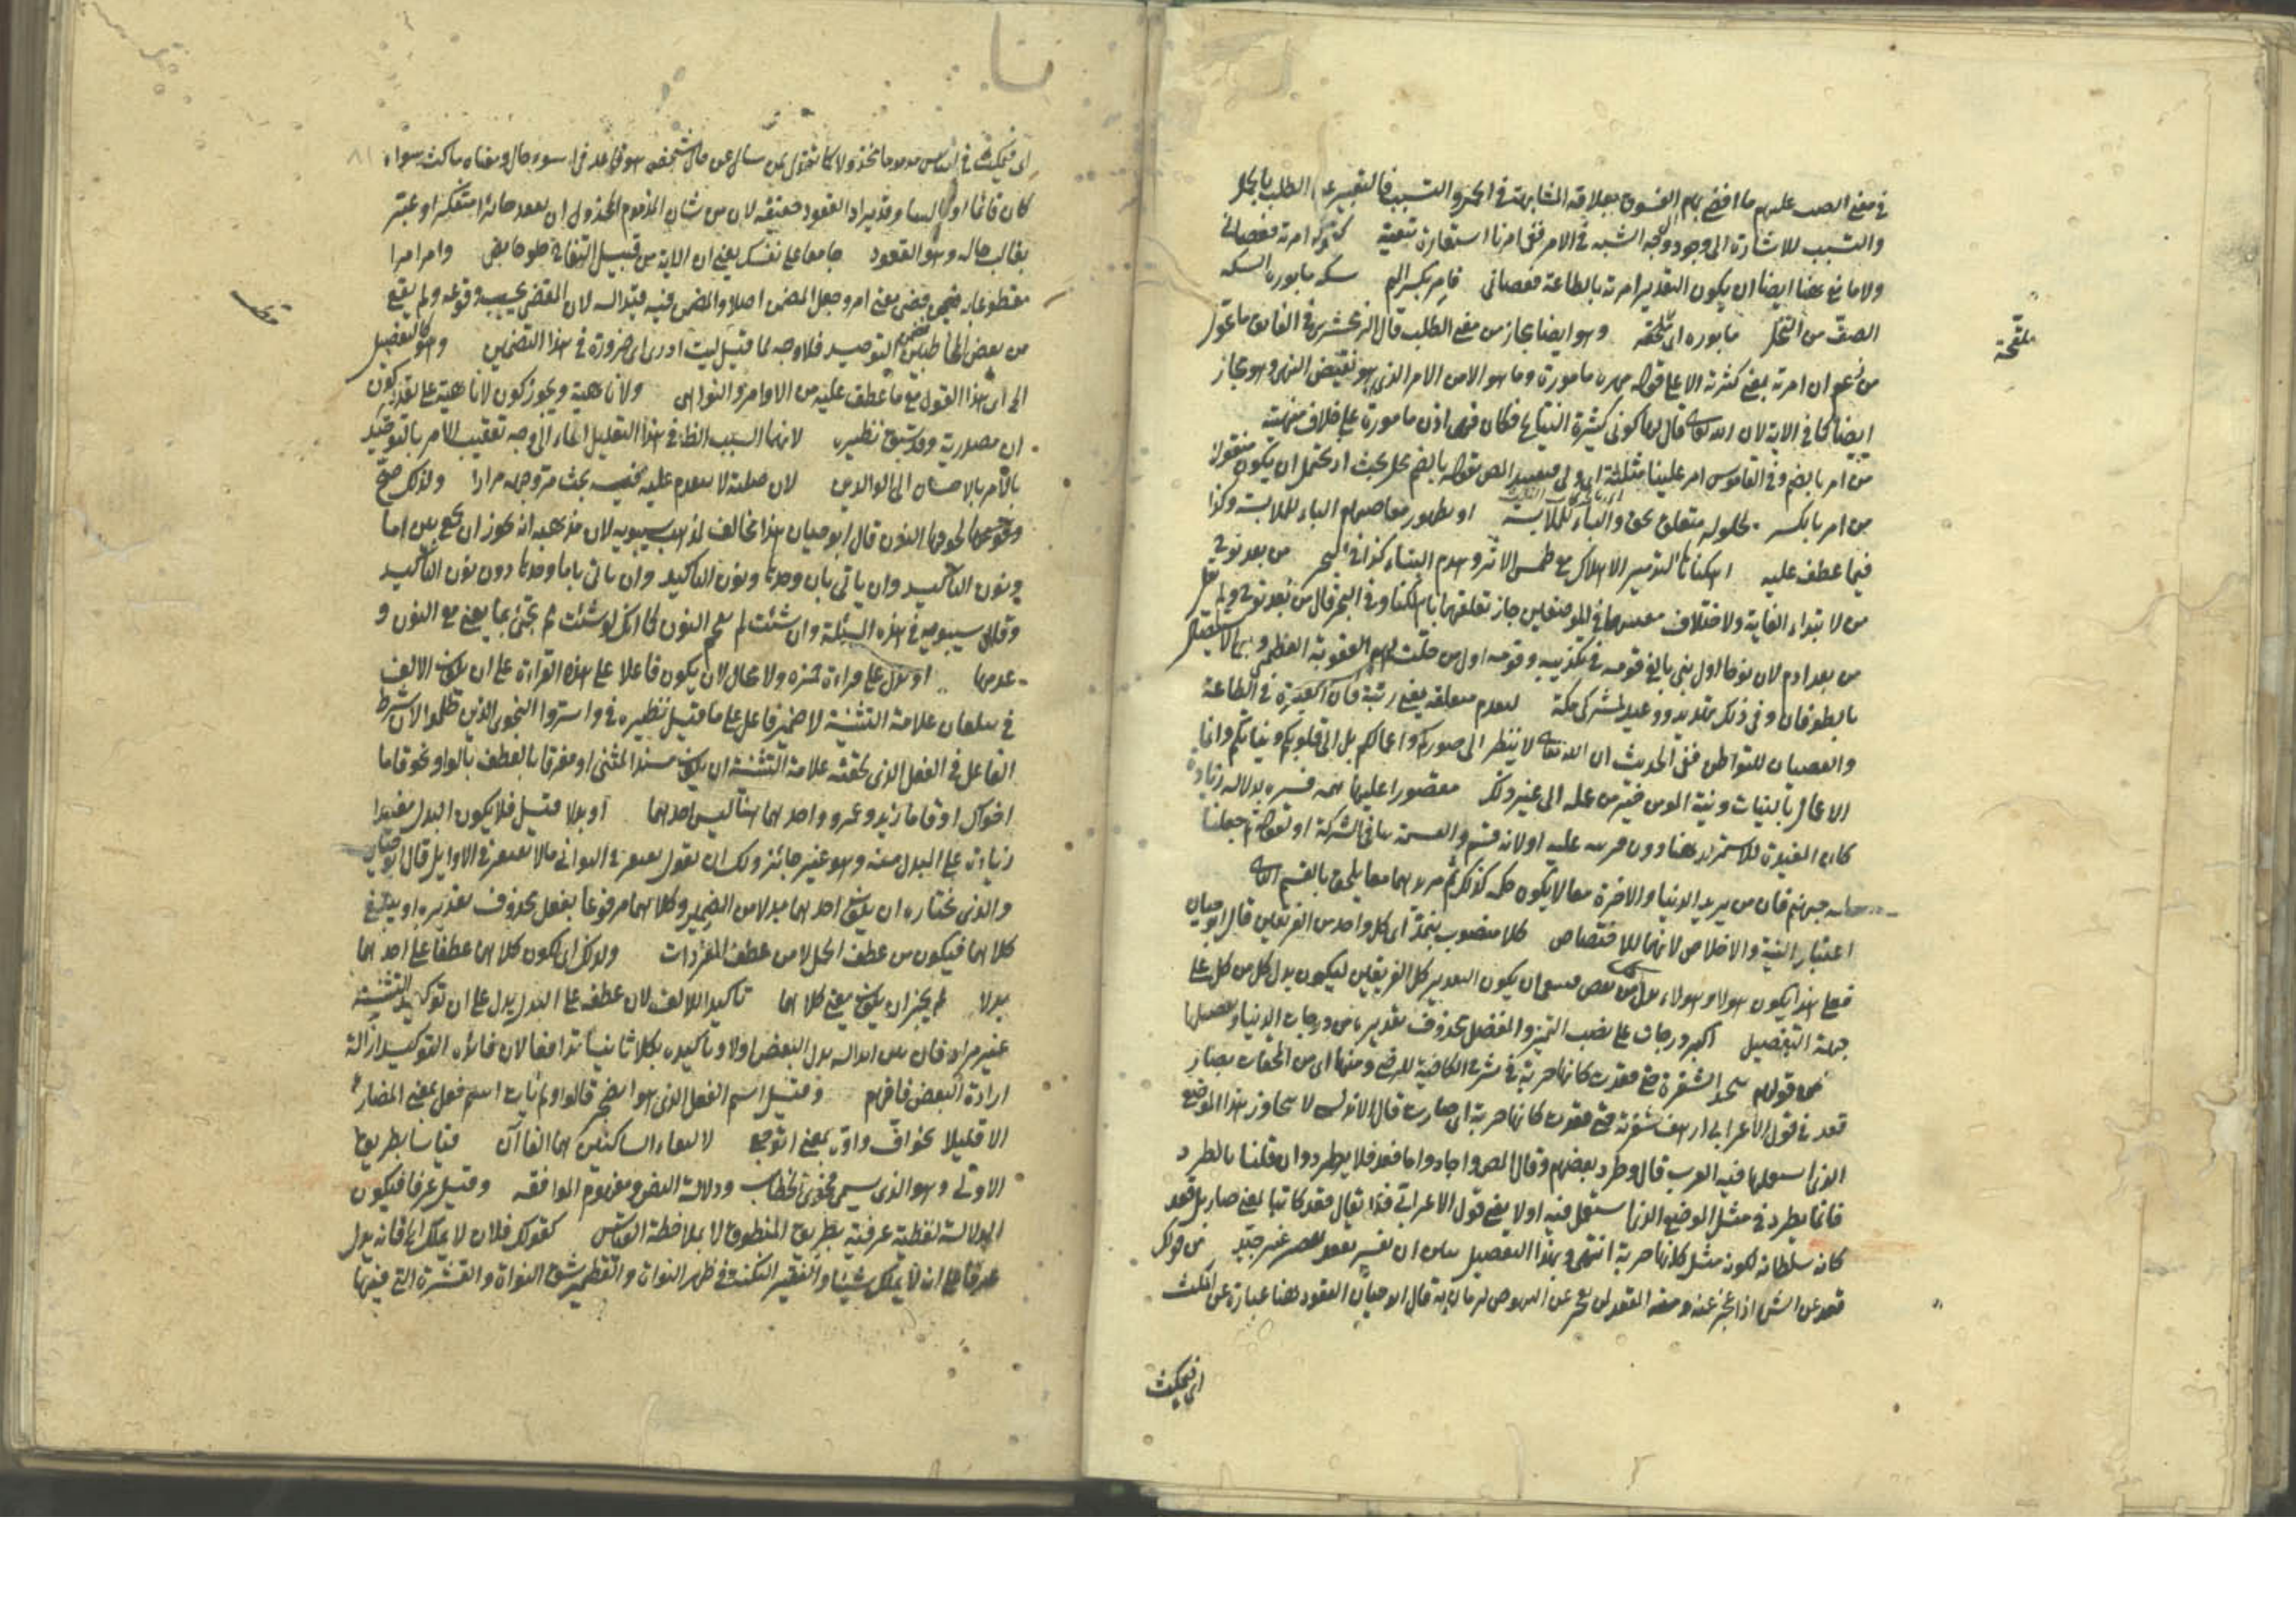 في معنى الصب عليهم ما افضى بهم الفسوق بعلاقة المشابهة في الحمل والتسبب فالتعبير عن الطلب بالحمل
والتسبب للاشارة الى وجود وجه الشبه في الامر ففي امرنا استعارة تبعية كقوله امرته فعصاني
ولا مانع ههنا ايضا ان يكون التقدير امرته بالطاعة فعصاني فامر بكسر الميم سكة مابورة السكة
الصف من النخل مابورة اى ملقحة وهو ايضا مجاز من معنى الطلب قال الزمخشرى في الفائق ما عول
من زعم ان امرته بمعنى كثرته الا على قوله مهرة مامورة وما هو الا من الامر الذى هو نقيض النهى وهو مجاز
ايضا كما في الاية لان الله تعالى قال لها كونى كثيرة النتاج فكانت فهى اذن مامورة على خلاف منهية
من امر بالضم وفي القاموس امر علينا مثلثة اى ولى فتقييد المص بقوله بالضم محل بحث اذ يحتمل ان يكون منقولا
من امر بالكسر بحلوله متعلق بحق والباء للملابسة او بظهور معاصيهم الباء للملابسة وكذا
فيما عطف عليه اهلكناها التدمير الاهلاك مع طمس الاثر وهدم البناء كذا في البحر من بعد نوح
من لابتداء الغاية ولاختلاف معنييهما في الموضعين جاز تعلقهما باهلكنا وفي البحر قال من بعد نوح ولم يقل
من بعد ادم لان نوحا اول نبى بالغ قومه في تكذيبه وقومه اول من حلت بهم العقوبة العظمى
بالطوفان وفي ذلك تهديد ووعيد لمشركى مكة لتقدم متعلقه يعنى رتبة فان العبرة في الطاعة
والعصيان للبواطن ففى الحديث ان الله تعالى لا ينظر الى صوركم واعمالكم بل الى قلوبكم ونياتكم وانما
الاعمال بالنيات ونية المومن خير من عمله الى غير ذلك مقصورا عليها همه فسره بدلالة زيادة
كان المفيدة للاستمرار ههنا دون قرينه عليه او لانه قسم والقسمة تنافي الشركة او لقوله ثم جعلنا
له جهنم فان من يريد الدنيا والاخرة معا لا يكون حكمه كذلك ثم مريدهما معا يلحق بالقسم الثانى
اعتبار النية والاخلاص لانها للاختصاص كلا منصوب بنمد اى كل واحد من الفريقين قال ابو حيان
فعلى هذا يكون هولاء وهولاء بدل من بعض فينبغى ان يكون التقدير كل الفريقين ليكون بدل كل من كل على
جهة التفصيل اكبر درجات على نصب التميز والمفضل محذوف تقديره من درجات الدنيا وتفصيلها
من قولهم شحذ الشفرة حتى قعدت كانها حربة في شرح الكافية للرضى ومنها اى من الملحقات بصار
قعد في قول الاعرابى ارهف شفرته حتى قعدت كانها حربة اى صارت قال الاندلسى لا يتجاوز بهذا الموضع
الذى استعملها فيه العرب قال وطرد بعضهم وقال المص واجاد واما قعد فلا يطرد وان قلنا بالطرد
فانما يطرد في مثل الموضع الذى استعمل فيه اولا يعنى قول الاعرابى فلا يقال قعد كاتبا بمعنى صار بل قعد
كانه سلطان لكونه مثل كانها حربة انتهى وبهذا التفصيل
قعد عن الشئ اذا عجز عنه ومنه المقعد لمن عجز عن النهوض لزمانة به قال ابو حيان القعود هنا عبارة عن المكث
اى فيمكث
ملقحة
اى فيمكث في الناس مذموما مخذولا كما تقول لمن سال عن حال شخص هو قاعد في اسوء حال ومعناه ماكث سواء
كان قائما او جالسا وقد يراد القعود حقيقة لان من شان المذموم المخذول ان يقعد حائرا متفكرا وعبر
بغالب حاله وهو القعود جامعا على نفسك يعنى ان الاية من قبيل التغاير حلو حامض وامر امرا
مقطوعا به ضمن قضى معنى امر وجعل المضمن اصلا والمضمن فيه قيدا له لان المقضى يجب وقوعه ولم يقع
من بعض المخاطبين التوحيد فلا وجه لما قيل ليت ادرى اى ضرورة في هذا التضمين وهو كالتفصيل
اى هذا القول مع ما عطف عليه من الاوامر والنواهى ولا ناهية ويجوز كون لا ناهية على تقدير كون
ان مصدرية وقد سبق نظيره لانهما السبب الظاهر في هذا التعليل ايماء الى وجه تعقيب الامر بالتوحيد
بالامر بالاحسان الى الوالدين لان صلته لا يتقدم عليه فيه بحث مر توجيهه مرارا ولذلك صح
ونحوهما لحوقها النون قال ابو حيان هذا مخالف لمذهب سيبويه لان مذهبه انه يجوز ان يجمع بين اما
ونون التاكيد وان ياتى بان وحدها ونون التاكيد وان ياتى باما وحدها دون نون التاكيد
وقال سيبويه في هذه المسئلة وان شئت لم تقحم النون كما انك لو شئت لم تجئ بما يعنى مع النون و
عدمها او بدل على قراءة حمزة ولا مجال لان يكون فاعلا على هذه القراءة على ان يكون الالف
في يبلغان علامة التثنية لا ضمير فاعل على ما قيل نظيره في واسروا النجوى الذين ظلموا لان شرط
الفاعل في الفعل الذى لحقته علامة التثنية ان يكون مسند المثنى او مفرقا بالعطف بالواو نحو قاما
اخواك او قاما زيد وعمرو واحدهما هنا ليس احدهما او بدلا قيل فلا يكون البدل مفيدا
زيادة على المبدل منه وهو غير جائز ولك ان تقول يغتفر في الثوانى مالا يغتفر في الاوايل قال ابو حيان
والذى نختاره ان يكون احدهما بدلا من الضمير وكلاهما مرفوعا بفعل محذوف تقديره او يبلغ
كلاهما فيكون من عطف الجمل لا من عطف المفردات ولذلك اى لكون كلاهما عطفا على احدهما
بدلا لم يجز ان يكون يعنى كلاهما تاكيدا للالف لان عطفه على البدل يدل على ان توكيد التثنية
غير مراد فان بين ابداله بدل البعض اولا وتاكيده بكلا ثانيا تدافعا لان فائدة التوكيد ازالة
ارادة البعض فافهم وقيل اسم الفعل الذى هو اتضجر قالوا ولم يات اسم فعل بمعنى المضارع
الا قليلا نحو اف واوه بمعنى اتوجع لالتقاء الساكنين هما الفاآن قياسا بطريق
الاولى وهو الذى يسمى فحوى الخطاب ودلالة النص ومفهوم الموافقة وقيل عرفا فيكون
الدلالة لفظية عرفية بطريق المنطوق لا بملاحظة القياس كقولك فلان لا يملك فانه يدل
عرفا على انه لا يملك شيئا والنقير النكتة في ظهر النواة والقطمير شق النواة والقشرة التى فيها